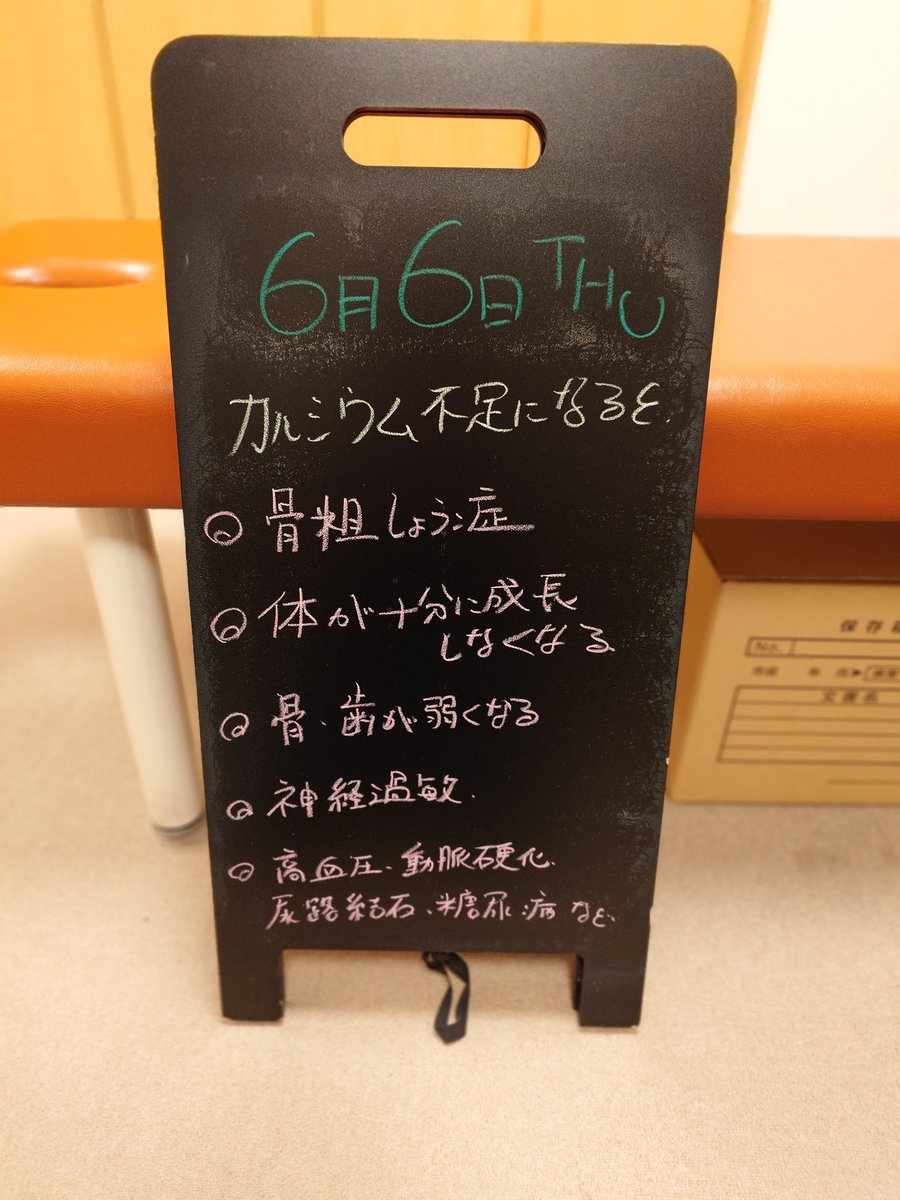 6月6日THU
カルシウム不足になると
◎骨粗しょう症
◎体が十分に成長
しなくなる
◎骨・歯が弱くなる
◎神経過敏
◎高血圧、動脈硬化
尿路結石、糖尿病など
保存
No.
文書名